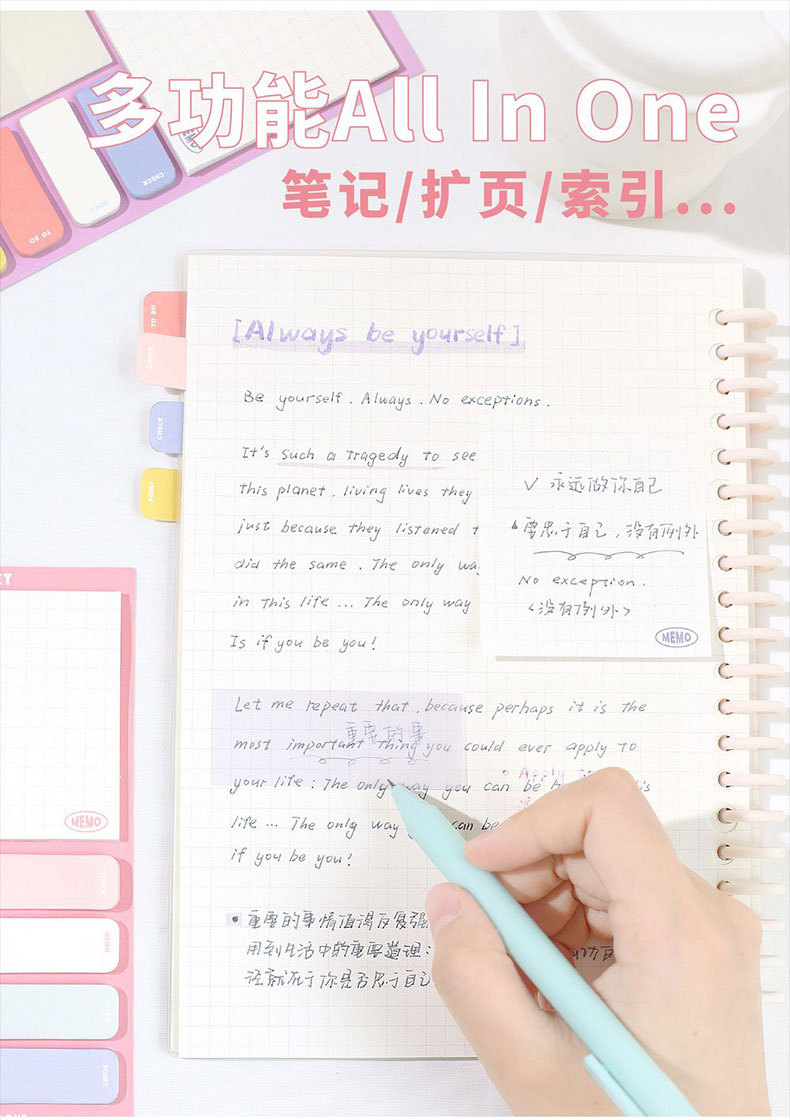 多功能All In One
笔记/扩页/索引...
TO DO
MEMO
CHECK
MEMO
TO DO
CHECK
CHECK
POINT
[Always be yourself]
Be yourself. Always. No exceptions.
It's such a tragedy to see
this planet, living lives they
just because they listened
did the same. The only way
in this life ... The only way
Is if you be you!
✓ 永远做你自己
要忠于自己，没有例外
No exception.
<没有例外>
MEMO
Let me repeat that, because perhaps it is the
重要的事
most important thing you could ever apply to
Apply
your life: The only way you can be
life ... The only way can be
if you be you!
• 重要的事情值得反复强
用到生活中的重要道理:
还就在于你是否忠于自己
MEMO
CHECK
MEMO
TO DO
POINT